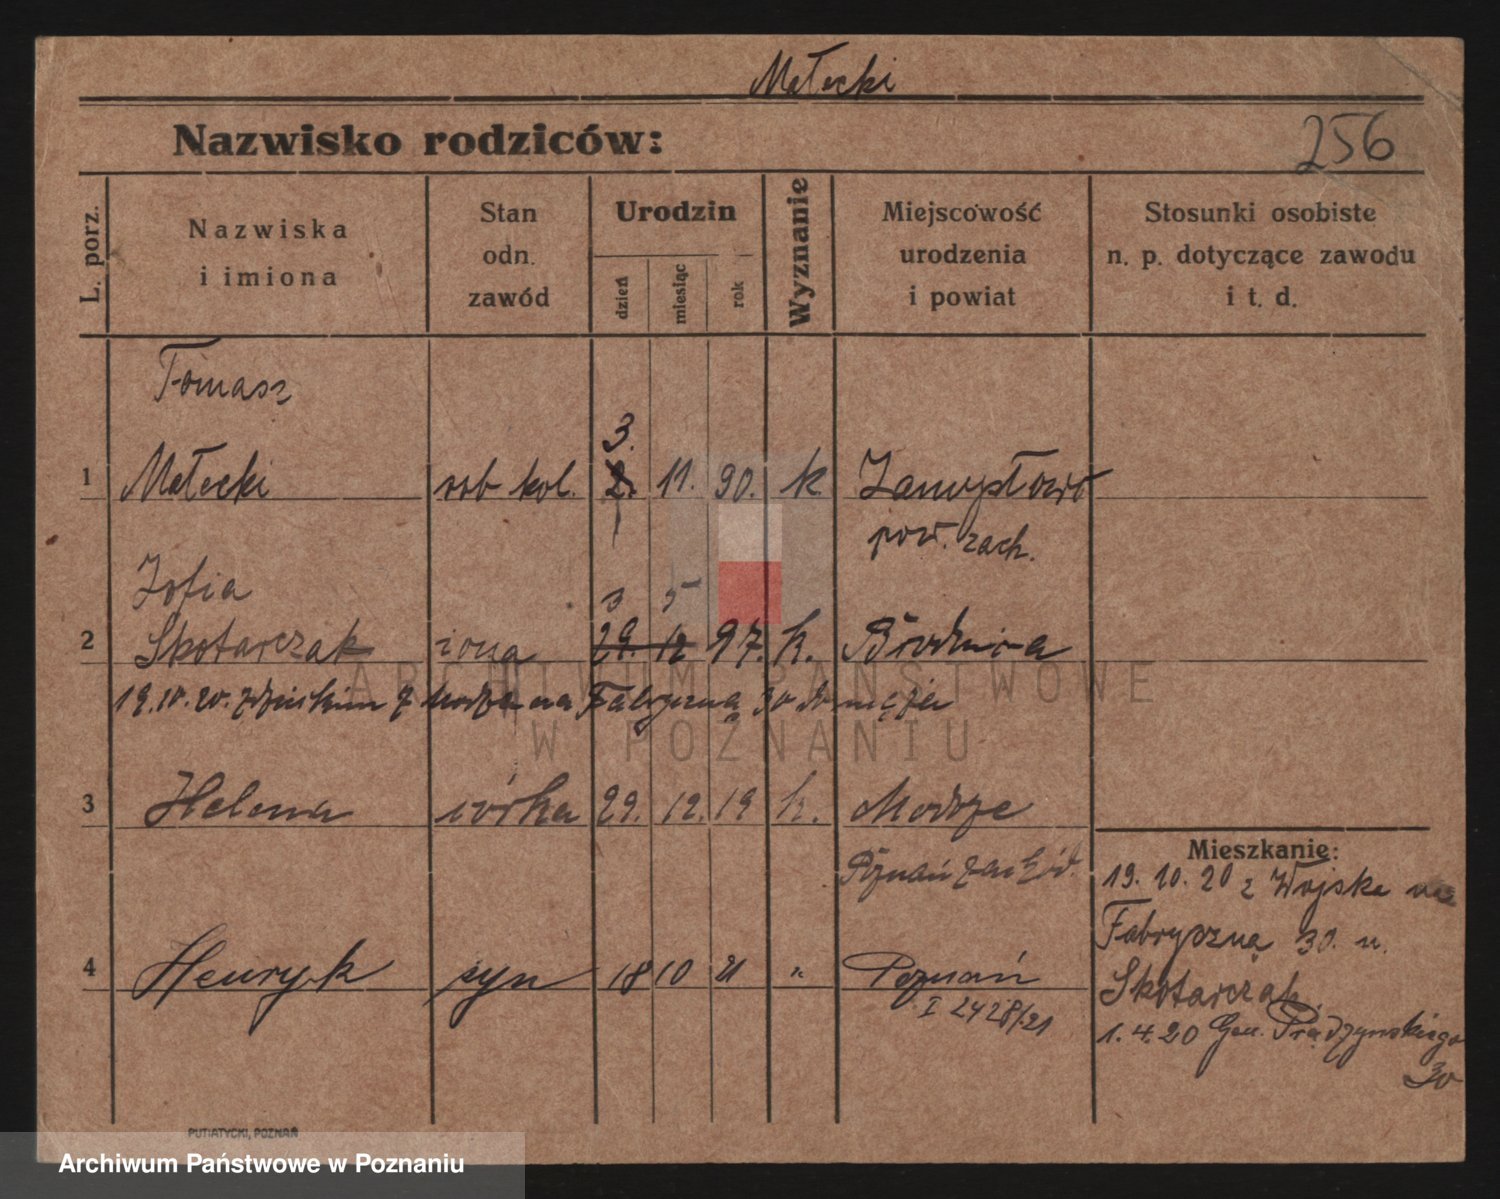 Małecki
Nazwisko rodziców:
256
L. porz.
Nazwiska
i imiona
Stan
odn.
zawód
Urodzin
dzień
miesiąc
rok
Wyznanie
Miejscowość
urodzenia
i powiat
Stosunki osobiste
n. p. dotyczące zawodu
i t. d.
Tomasz
3.
1 Małecki rob kol. 2. 11. 90. k Zamysłowo
pow. zach.
Zofia 3 5
2 Skotarczak żona 29. 12 97. k. Brodnica
19.10.20. z Modza na Fabryczną 30 do męża
3 Helena córka 29. 12. 19 k. Modrze
Poznań zachód.
Mieszkanie:
19. 10. 20 z Wojska na
Fabryczną 30. u.
4 Henryk syn 18 10 21 " Poznań
I 2428/21
Skotarczak.
1. 4. 20 Gen. Prądzynskiego
30
PUTIATYCKI, POZNAŃ
ARCHIWUM PAŃSTWOWE
W POZNANIU
Archiwum Państwowe w Poznaniu